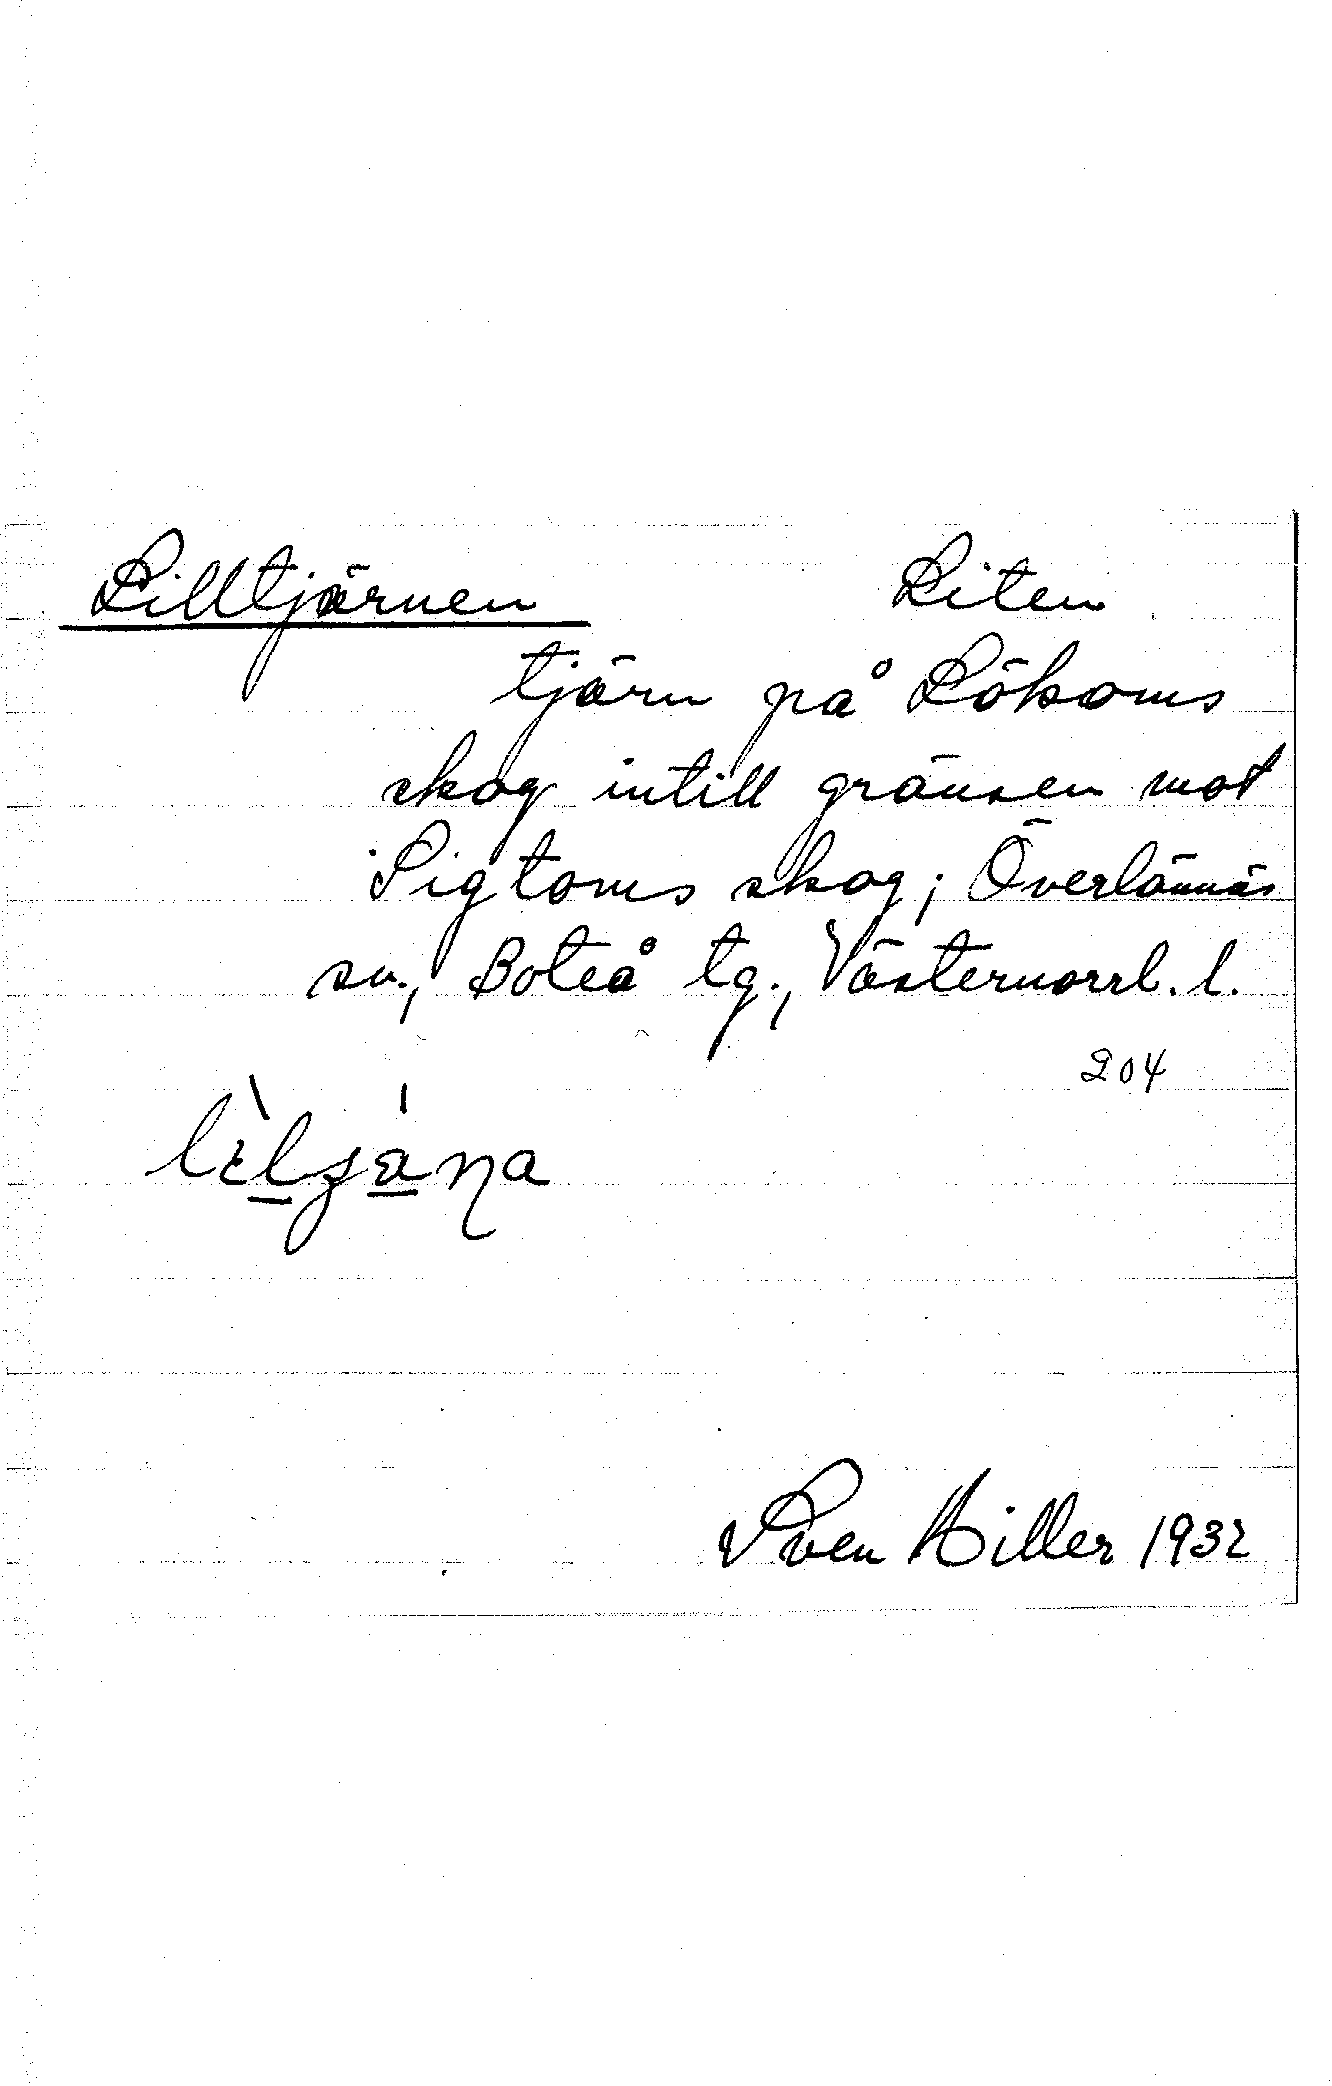 Lilltjärnen Liten
tjärn på Lökoms
skog intill gränsen mot
Sigtoms skog; Överlännäs
sn., Boteå tg., Västernorrl. l.
204
Sven Hiller 1932